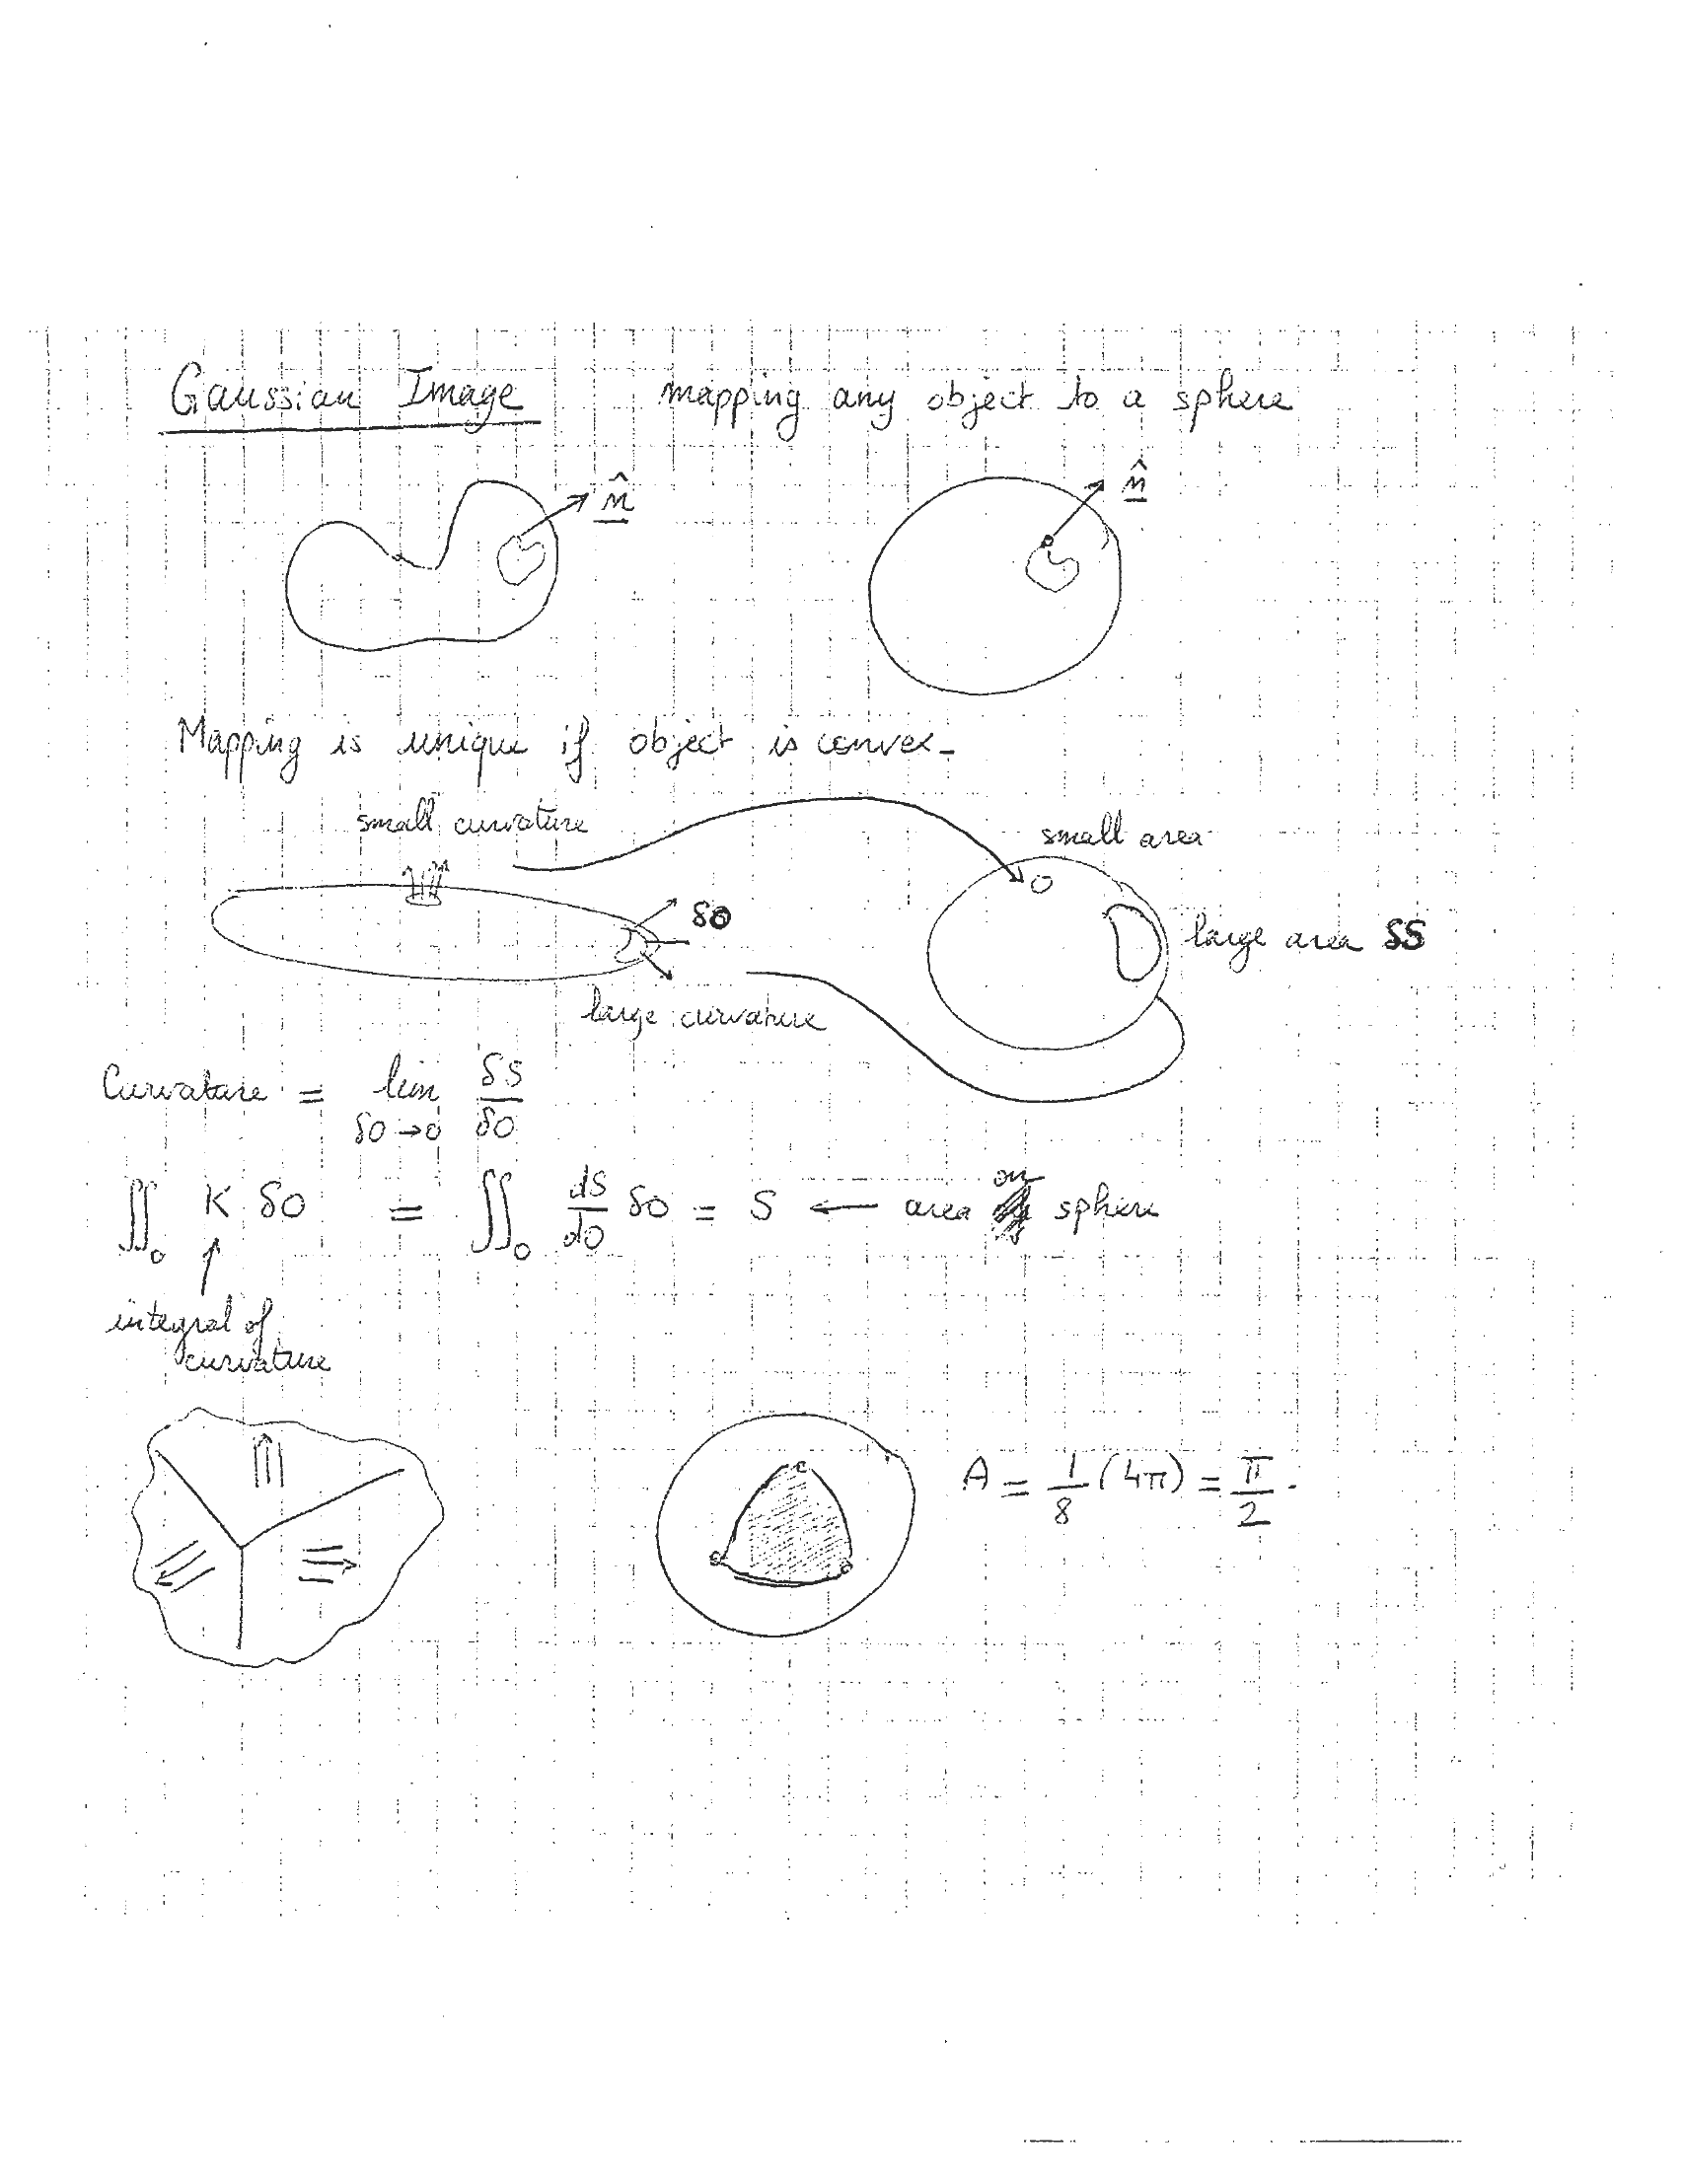 Gaussian Image mapping any object to a sphere
n̂ n̂
Mapping is unique if object is convex.
small curvature small area
δO large area δS
large curvature
Curvature = lim δO→0 δS/δO
∬_O K δO = ∬_O dS/dO δO = S ← area on sphere
↑
integral of
curvature
A = 1/8 (4π) = π/2.